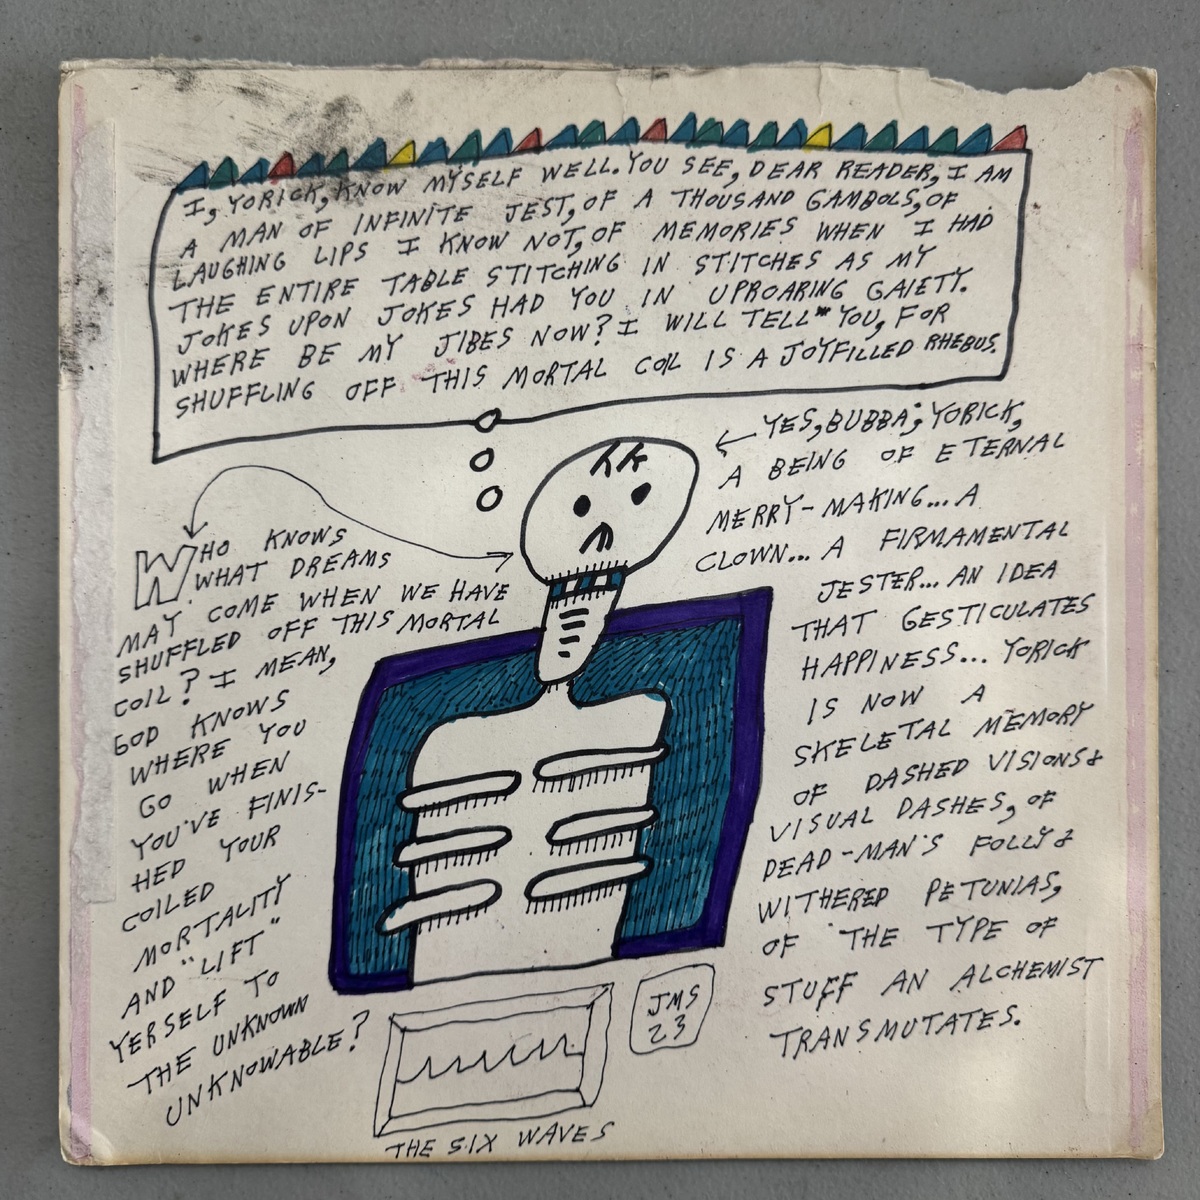 I, YORICK, KNOW MYSELF WELL. YOU SEE, DEAR READER, I AM
A MAN OF INFINITE JEST, OF A THOUSAND GAMBOLS, OF
LAUGHING LIPS I KNOW NOT, OF MEMORIES WHEN I HAD
THE ENTIRE TABLE STITCHING IN STITCHES AS MY
JOKES UPON JOKES HAD YOU IN UPROARING GAIETY.
WHERE BE MY JIBES NOW? I WILL TELL YOU, FOR
SHUFFLING OFF THIS MORTAL COIL IS A JOYFILLED RHEBUS.
YES, BUBBA; YORICK,
A BEING OF ETERNAL
MERRY-MAKING... A
CLOWN... A FIRMAMENTAL
JESTER... AN IDEA
THAT GESTICULATES
HAPPINESS... YORICK
IS NOW A
SKELETAL MEMORY
OF DASHED VISIONS &
VISUAL DASHES, OF
DEAD-MAN'S FOLLY &
WITHERED PETUNIAS,
OF THE TYPE OF
STUFF AN ALCHEMIST
TRANSMUTATES.
WHO KNOWS
WHAT DREAMS
MAY COME WHEN WE HAVE
SHUFFLED OFF THIS MORTAL
COIL? I MEAN,
GOD KNOWS
WHERE YOU
GO WHEN
YOU'VE FINIS-
HED YOUR
COILED
MORTALITY
AND "LIFT"
YERSELF TO
THE UNKNOWN
UNKNOWABLE?
JMS
23
THE SIX WAVES